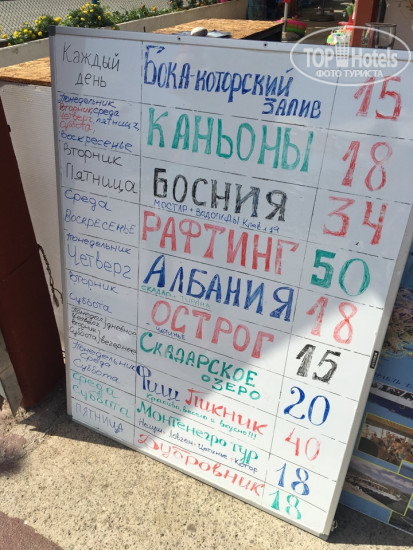 TopHotels
ФОТО ТУРИСТА
Каждый
день
Бока-которский
залив
15
Понедельник
Вторник среда
Четверг пятница
Суббота
Воскресенье
КАНЬОНЫ
18
Вторник
Пятница
БОСНИЯ
МОСТАР + ВОДОПАДЫ
34
Среда
Воскресенье
РАФТИНГ
50
Понедельник
Четверг
АЛБАНИЯ
18
Вторник
Суббота
ОСТРОГ
15
Скадарское
озеро
20
Понедельник
Среда
Суббота
Фиш Пикник
Красиво Весело и вкусно!!!
40
Среда
Суббота
Монтенегро тур
18
ПЯТНИЦА
Дубровник
18